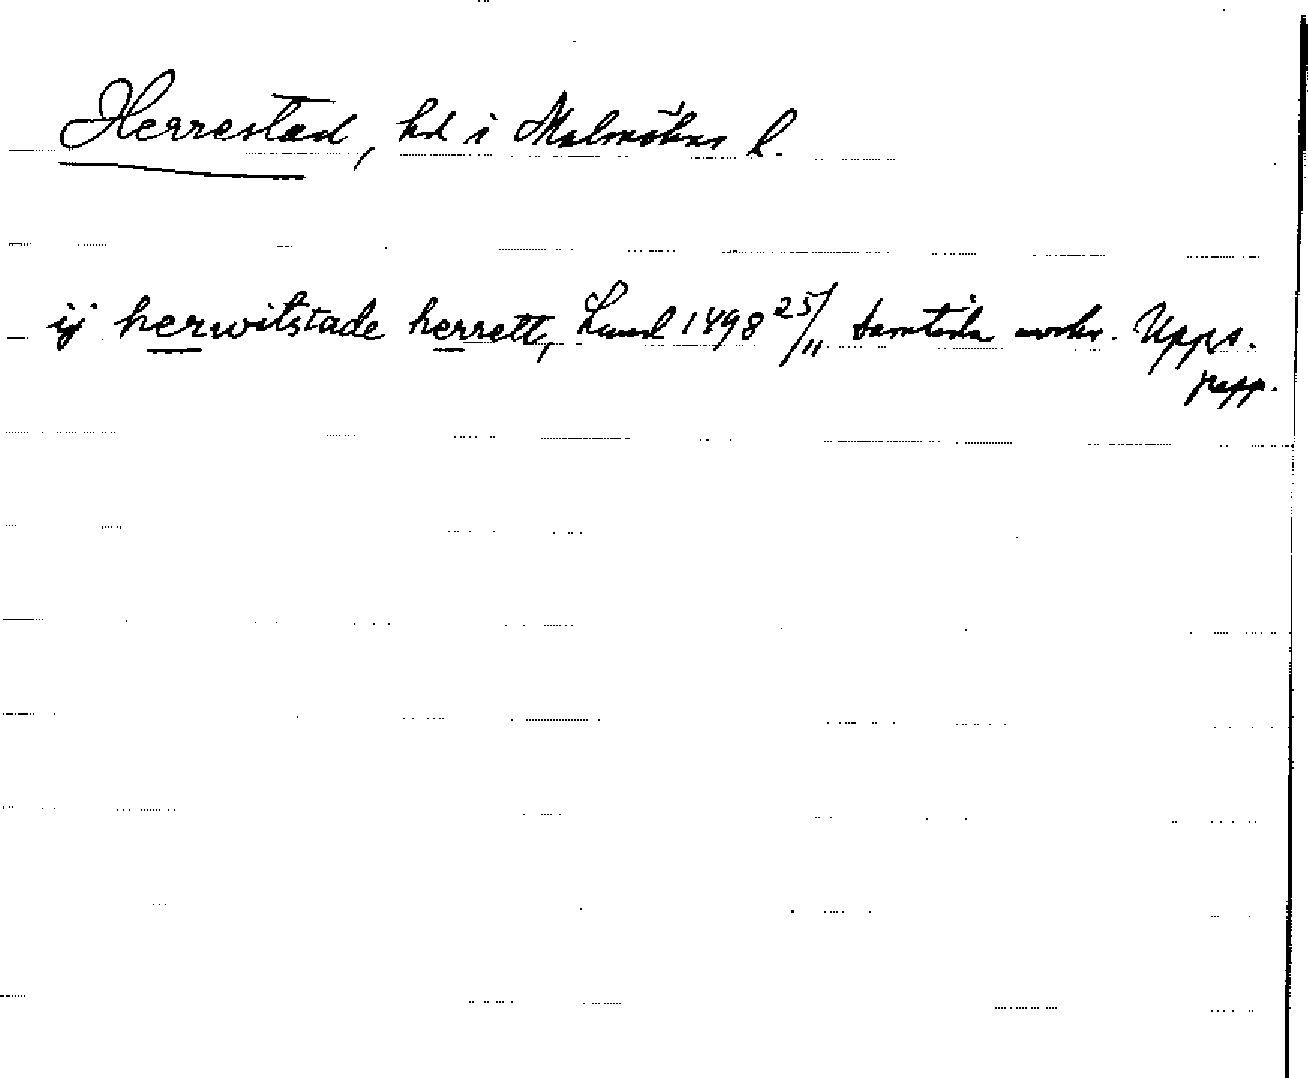 Herrestad, hd i Malmöhus l.
ij herwitstade herrett, Lund 1498 25/11 samtida avskr. Upps.
papp.